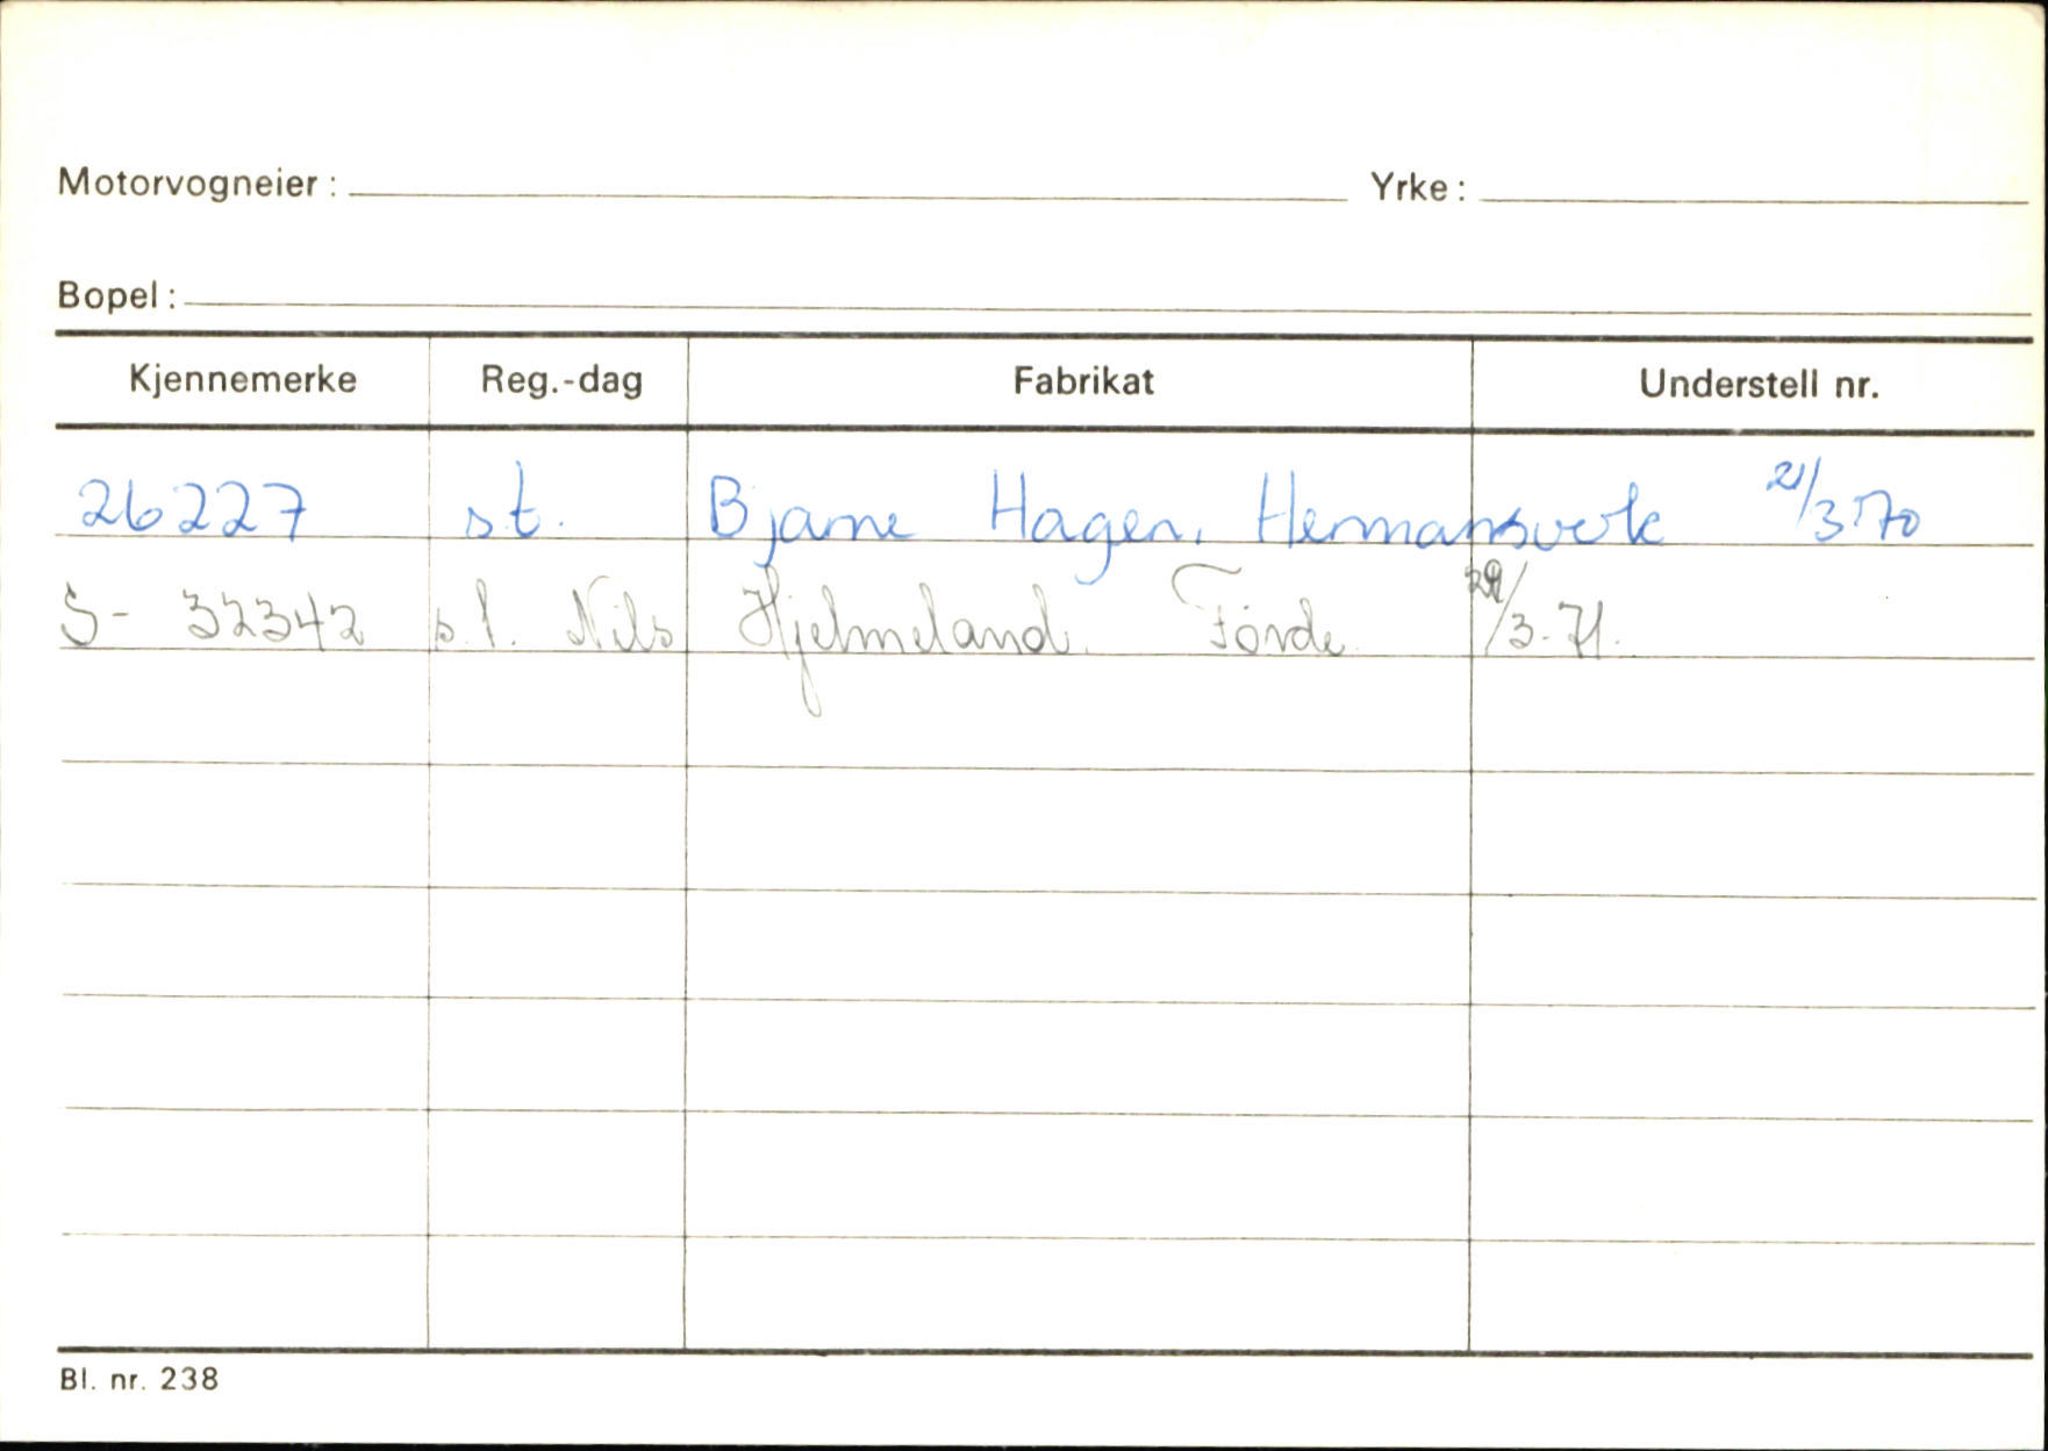 Motorvogneier: Yrke:
Bopel:
Kjennemerke Reg.-dag Fabrikat Understell nr.
26227 st. Bjarne Hagen, Hermansverk 21/3 70
S- 32342 s.t. Nils Hjelmeland. Førde /3-71.
Bl. nr. 238